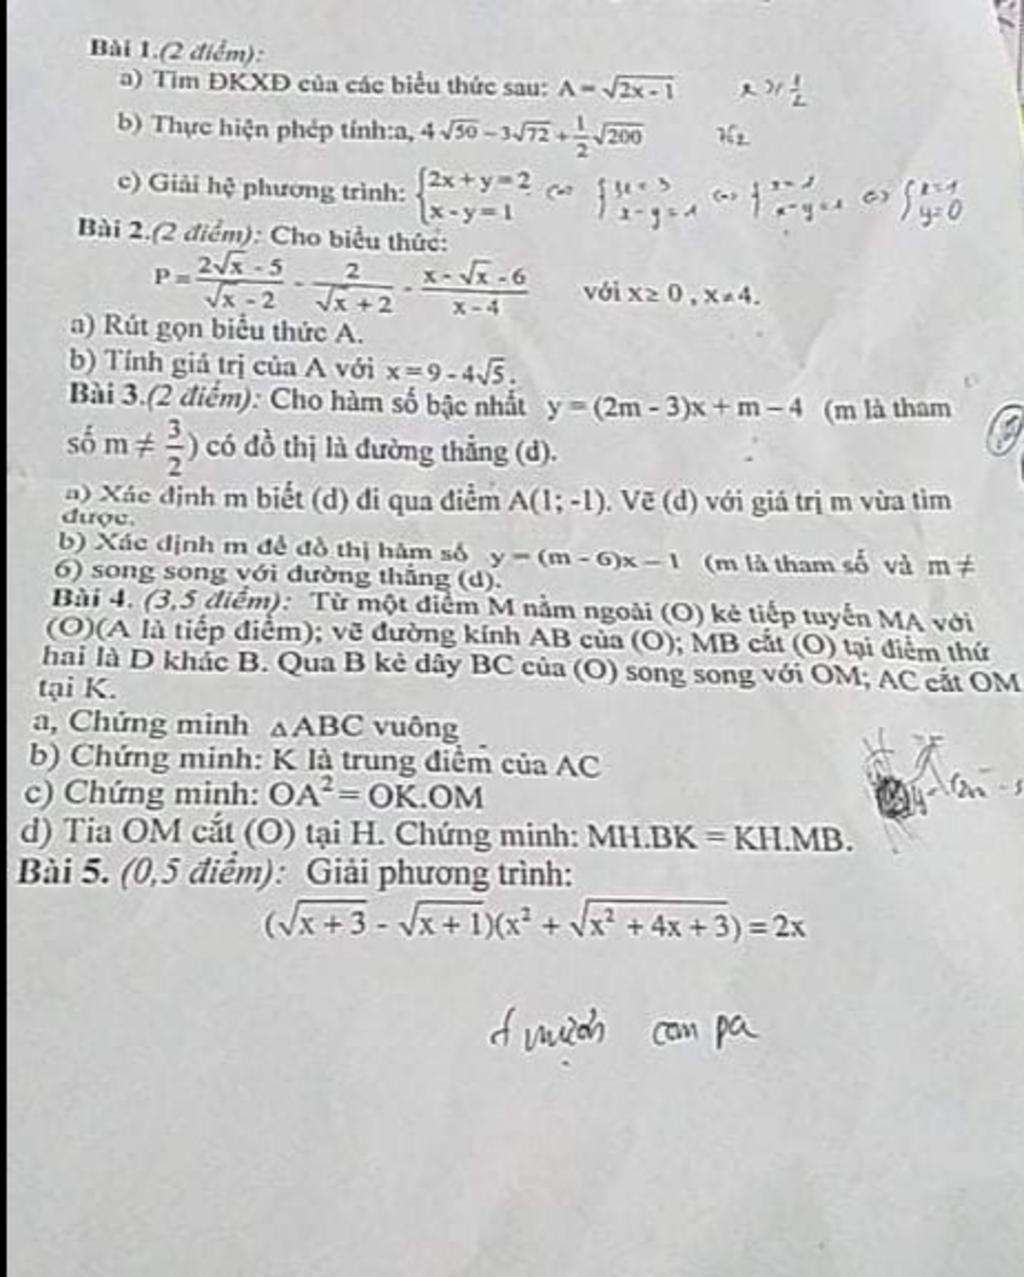 Bài 1.(2 điểm):
a) Tìm ĐKXĐ của các biểu thức sau: A = √(2x - 1) x ≥ 1/2
b) Thực hiện phép tính:a, 4√50 - 3√72 + 1/2 √200 7√2
c) Giải hệ phương trình: { 2x + y = 2 ; x - y = 1 ⇔ { 3x = 3 ; x - y = 1 ⇔ { x = 1 ; x - y = 1 ⇔ { x = 1 ; y = 0
Bài 2.(2 điểm): Cho biểu thức:
P = (2√x - 5)/(√x - 2) - 2/(√x + 2) - (x - √x - 6)/(x - 4) với x ≥ 0 , x ≠ 4.
a) Rút gọn biểu thức A.
b) Tính giá trị của A với x = 9 - 4√5.
Bài 3.(2 điểm): Cho hàm số bậc nhất y = (2m - 3)x + m – 4 (m là tham
số m ≠ 3/2) có đồ thị là đường thẳng (d).
a) Xác định m biết (d) đi qua điểm A(1; -1). Vẽ (d) với giá trị m vừa tìm
được.
b) Xác định m để đồ thị hàm số y = (m - 6)x – 1 (m là tham số và m ≠
6) song song với đường thẳng (d).
Bài 4. (3,5 điểm): Từ một điểm M nằm ngoài (O) kẻ tiếp tuyến MA với
(O)(A là tiếp điểm); vẽ đường kính AB của (O); MB cắt (O) tại điểm thứ
hai là D khác B. Qua B kẻ dây BC của (O) song song với OM; AC cắt OM
tại K.
a, Chứng minh △ABC vuông
b) Chứng minh: K là trung điểm của AC
c) Chứng minh: OA² = OK.OM
d) Tia OM cắt (O) tại H. Chứng minh: MH.BK = KH.MB.
Bài 5. (0,5 điểm): Giải phương trình:
(√(x + 3) - √(x + 1))(x² + √(x² + 4x + 3)) = 2x
mượn com pa